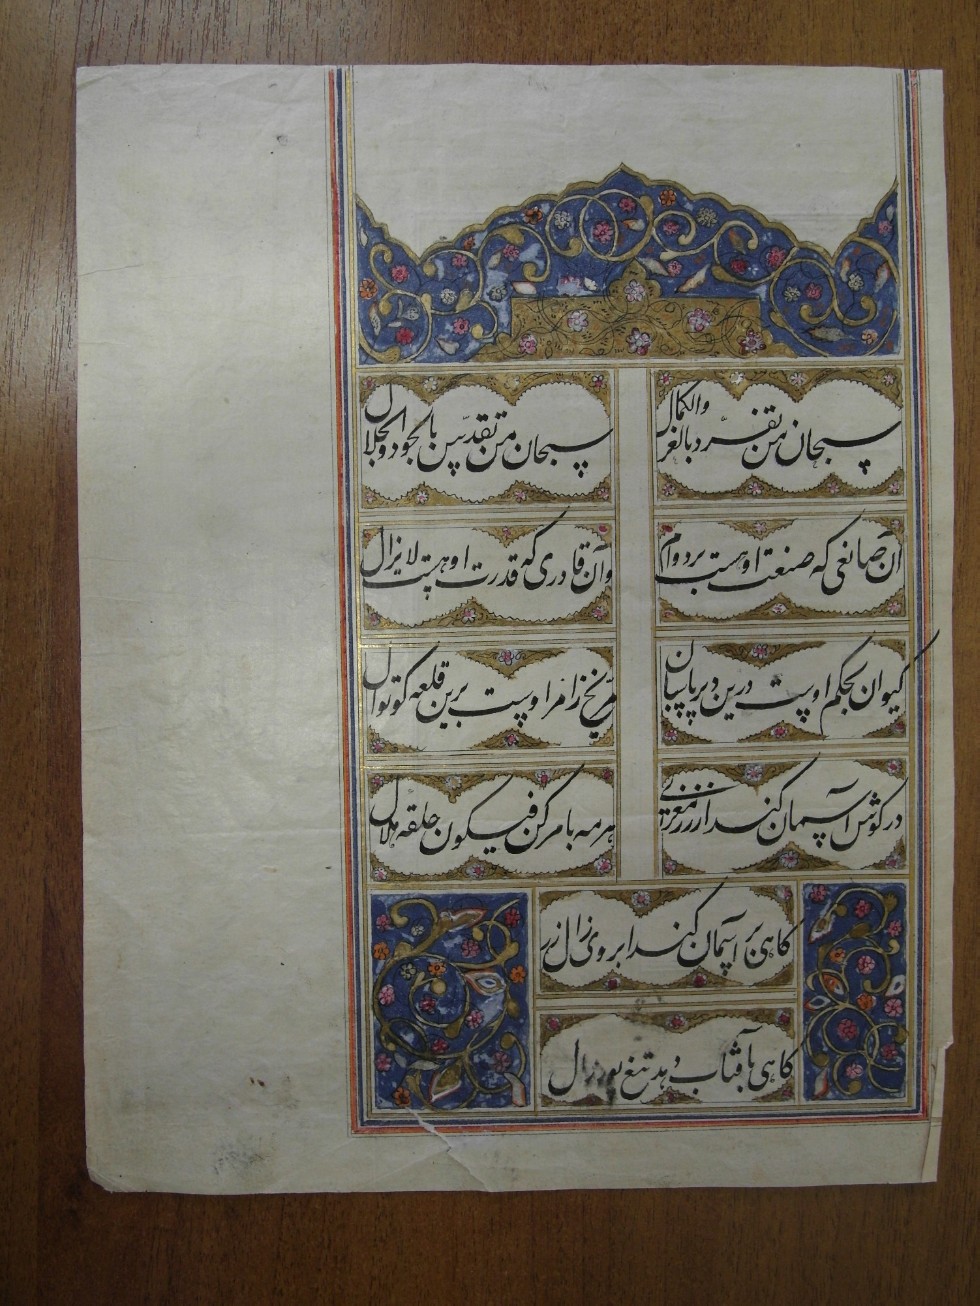 سبحان من تفرد بالعز والکمال
سبحان من تقدس بالجود والجلال
آن صانعی که صنعت اوهست بردوام
وآن قادری که قدرت اوهست لایزال
کیوان بحکم اوست درین دیر پاسبان
مریخ زامر اوست برین قلعه کوتوال
درکوش آسمان کند از زر مغربی
هر مه بامر کن فیکون حلقه هلال
کاهی بر آسمان کند ابروی زال زر
کاهی بآفتاب دهد تیغ پور زال